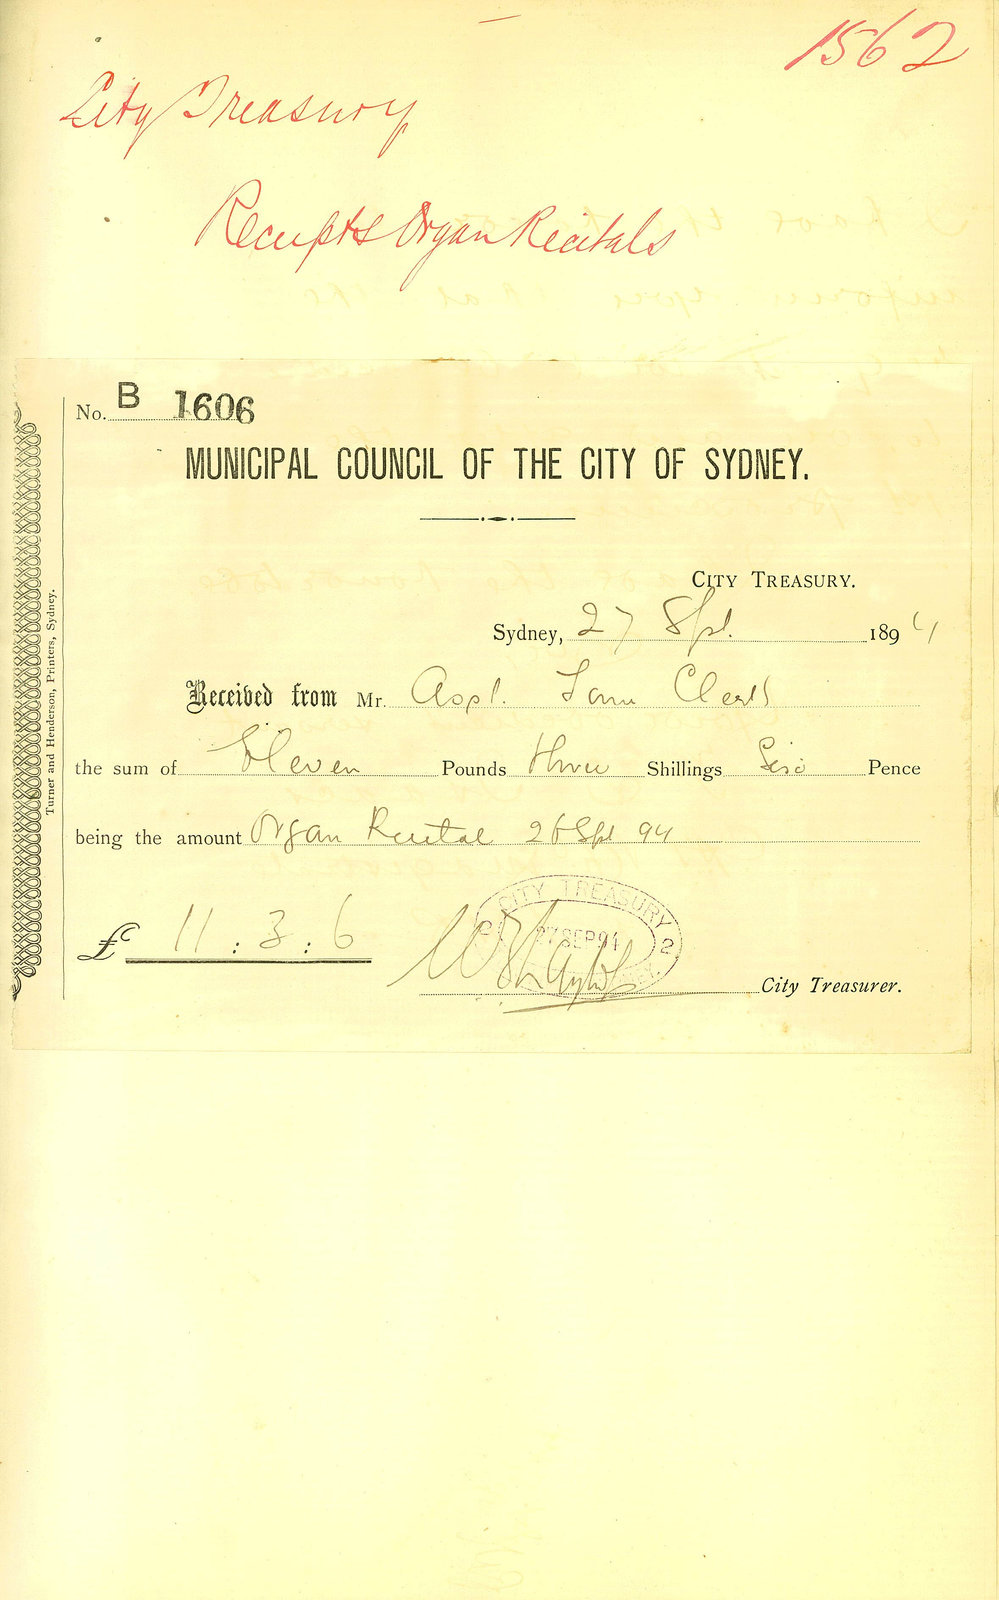 1562
City Treasury
Receipts Organ Recitals
No. B 1606
MUNICIPAL COUNCIL OF THE CITY OF SYDNEY.
CITY TREASURY.
Sydney, 27 Sept. 1894
Received from Mr. Asst. Town Clerk
the sum of Eleven Pounds three Shillings Six Pence
being the amount Organ Recital 26 Sept 94
£ 11 : 3 : 6
CITY TREASURY
2 27 SEP 94 2
City Treasurer.
Turner and Henderson, Printers, Sydney.